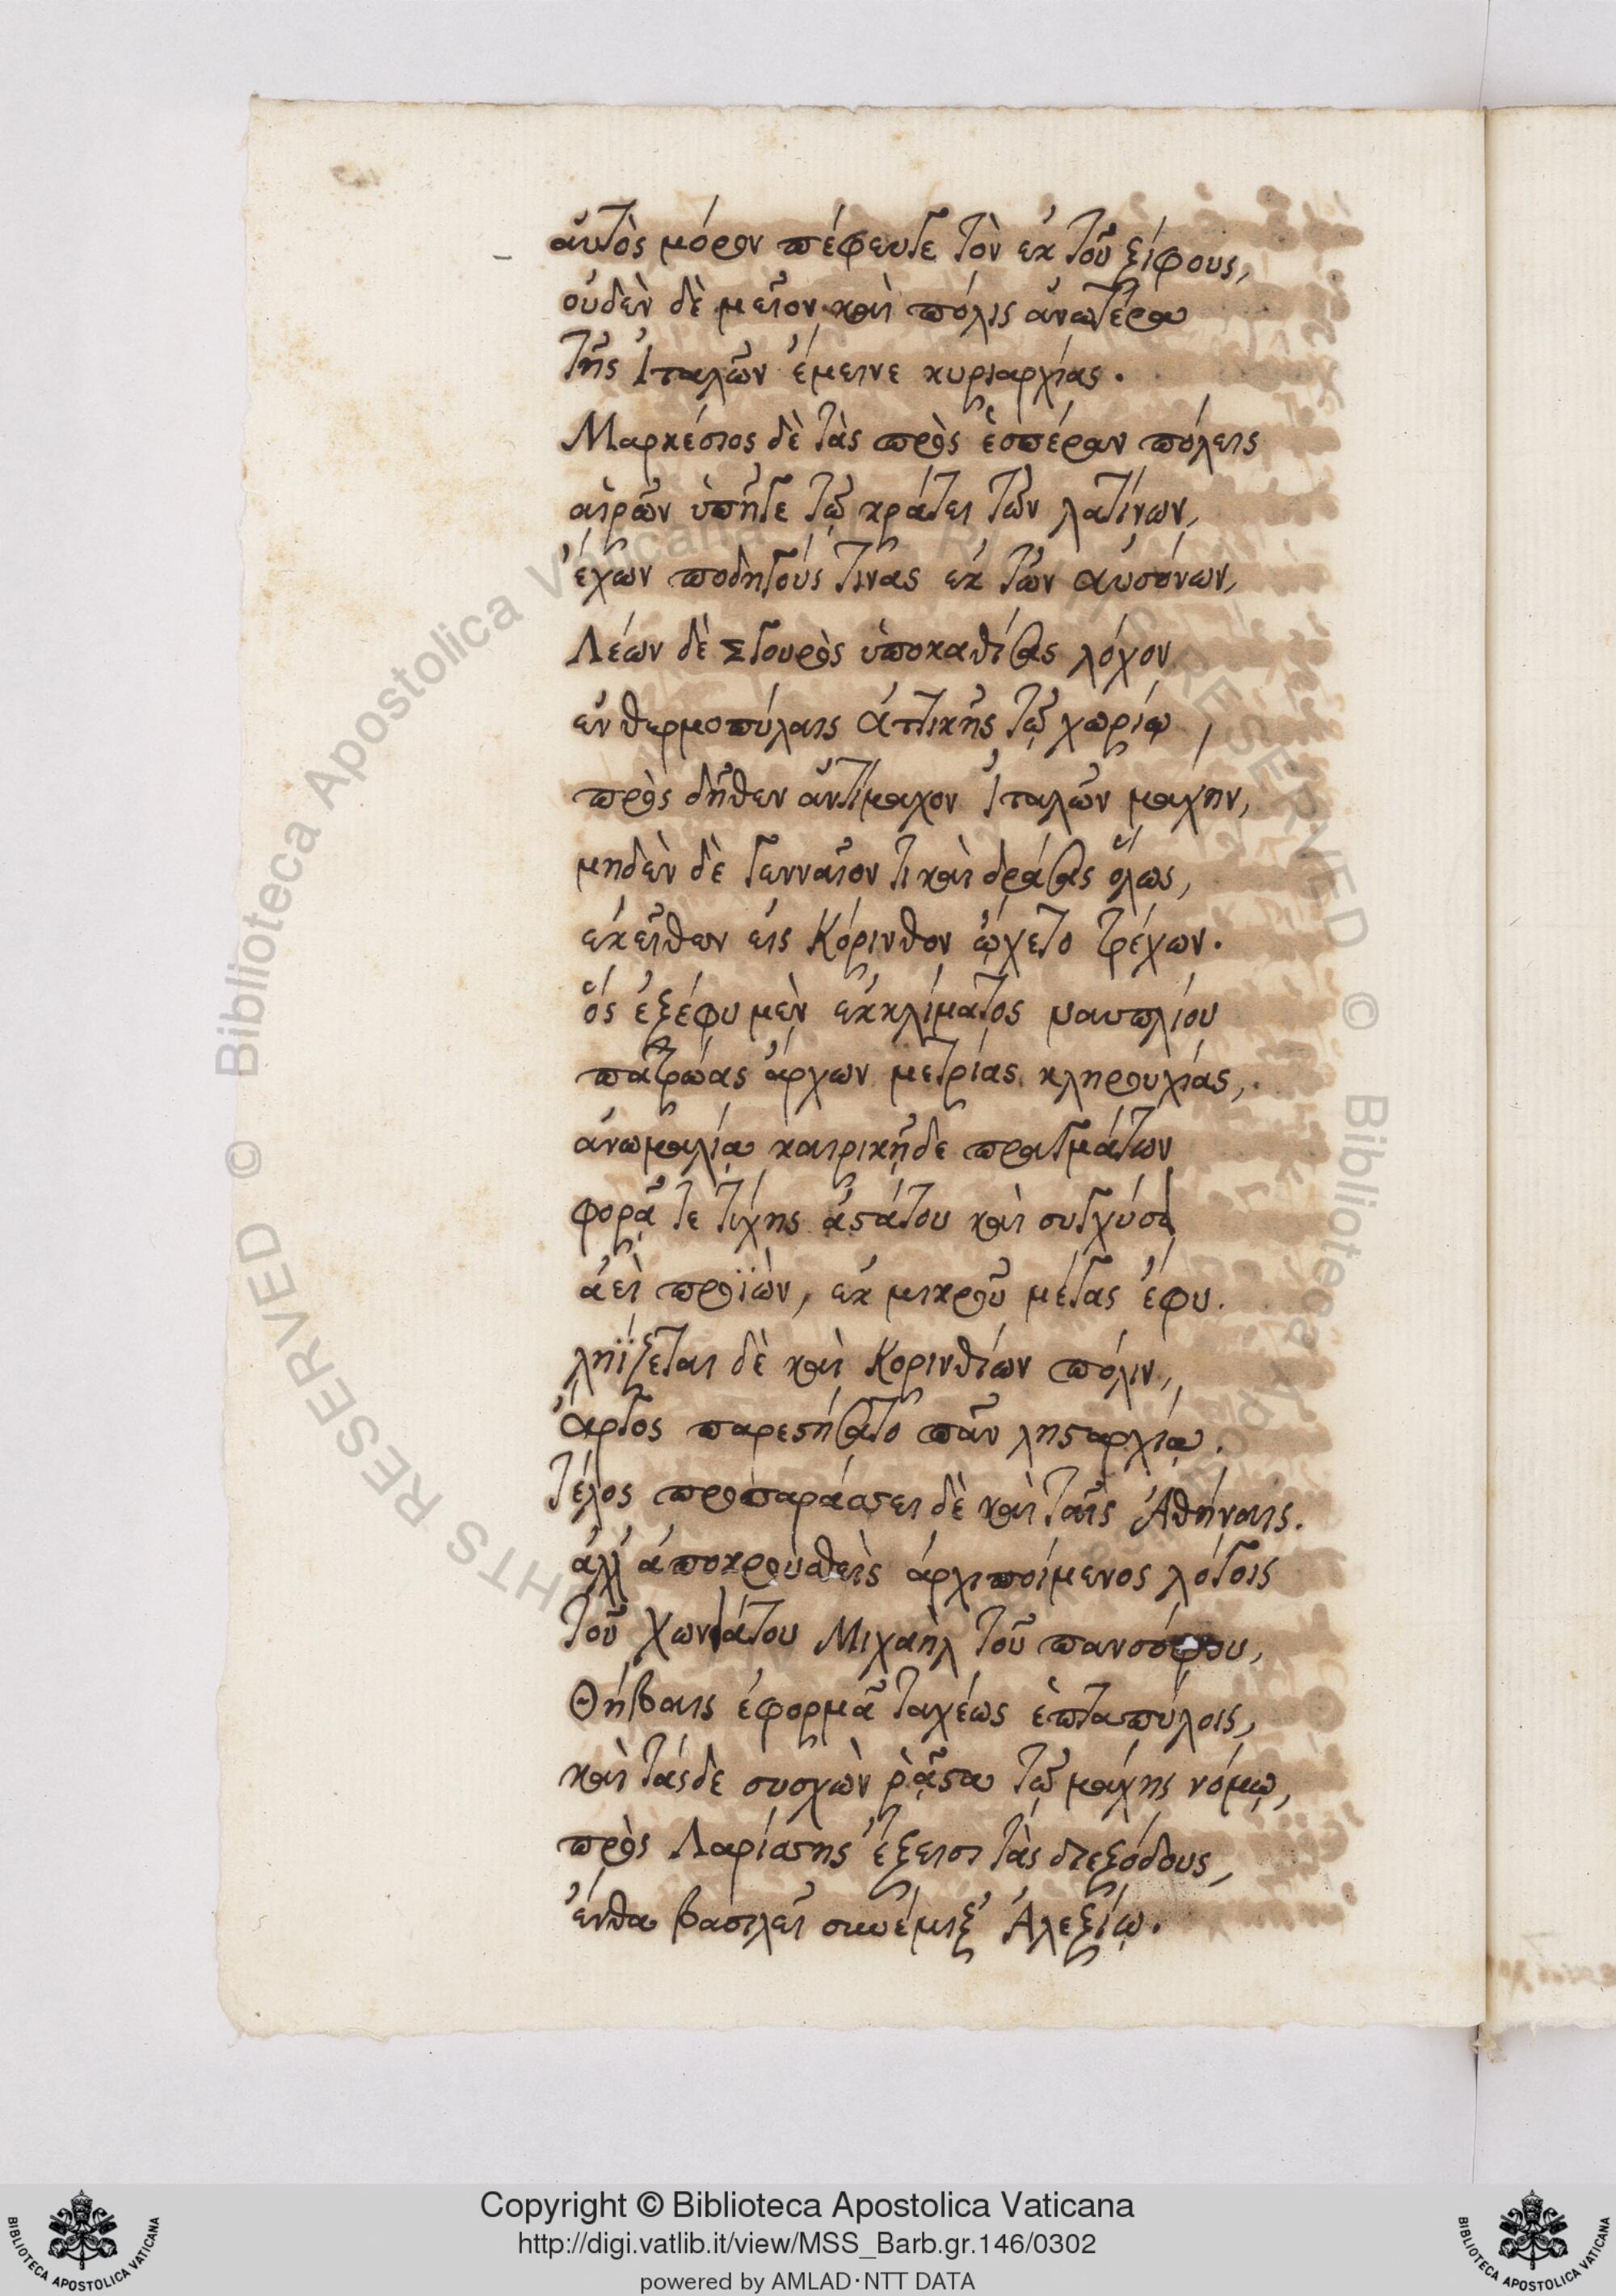 αὐτὸς μόρον πέφευγε τὸν ἐκ τοῦ ξίφους,
οὐδὲν δὲ μεῖον καὶ πόλις ἀνωτέρα
τῆς Ἰταλῶν ἔμεινε κυριαρχίας.
Μαρκέσιος δὲ τὰς πρὸς ἑσπέραν πόλεις
αἱρῶν ὑπῆγε τῷ κράτει τῶν λατίνων,
ἔχων ποδηγούς τινας ἐκ τῶν αὐσόνων,
Λέων δὲ Σγουρὸς ὑποκαθίσας λόχον
ἐν θερμοπύλαις ἀττικῆς τῷ χωρίῳ,
πρὸς δῆθεν ἀντίμαχον Ἰταλῶν μάχην,
μηδὲν δὲ γενναῖόν τι καὶ δράσας ὅλως,
ἐκεῖθεν εἰς Κόρινθον ᾤχετο τρέχων.
ὃς ἐξέφυ μὲν ἐκ κλίματος ναυπλίου
πατρῴας ἄρχων μετρίας κληρουχίας,
ἀνωμαλίᾳ καιρικῇ δὲ πραγμάτων
φορᾷ τε τύχης ἀστάτου καὶ συγχύσει
ἀεὶ προϊὼν, ἐκ μικροῦ μέγας ἔφυ.
ληΐζεται δὲ καὶ Κορινθίων πόλιν,
Ἄργος παρεστήσατο πᾶν λησταρχίᾳ.
τέλος προσπαράσσει δὲ καὶ ταῖς Ἀθήναις.
ἀλλ' ἀποκρουσθεὶς ἀρχιποίμενος λόγοις
τοῦ Χωνιάτου Μιχαὴλ τοῦ πανσόφου,
Θήβαις ἐφορμᾷ ταχέως ἑπταπύλοις,
καὶ τάσδε συσχὼν ῥᾷστα τῷ μάχης νόμῳ,
πρὸς Λαρίσσης ἔξεισι τὰς διεξόδους,
ἔνθα βασιλεῖ συνέμιξ' Ἀλεξίῳ.
© Biblioteca Apostolica Vaticana
RIGHTS RESERVED
Copyright © Biblioteca Apostolica Vaticana
http://digi.vatlib.it/view/MSS_Barb.gr.146/0302
powered by AMLAD·NTT DATA
BIBLIOTECA APOSTOLICA VATICANA
BIBLIOTECA APOSTOLICA VATICANA